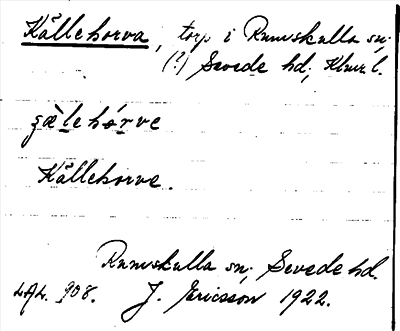 Kållehorva, torp i Rumskulla sn;
(?) Sevede hd; Klmr l.
Kållehorve.
Rumskulla sn; Sevede hd.
LAL. 908. J. Ericsson 1922.